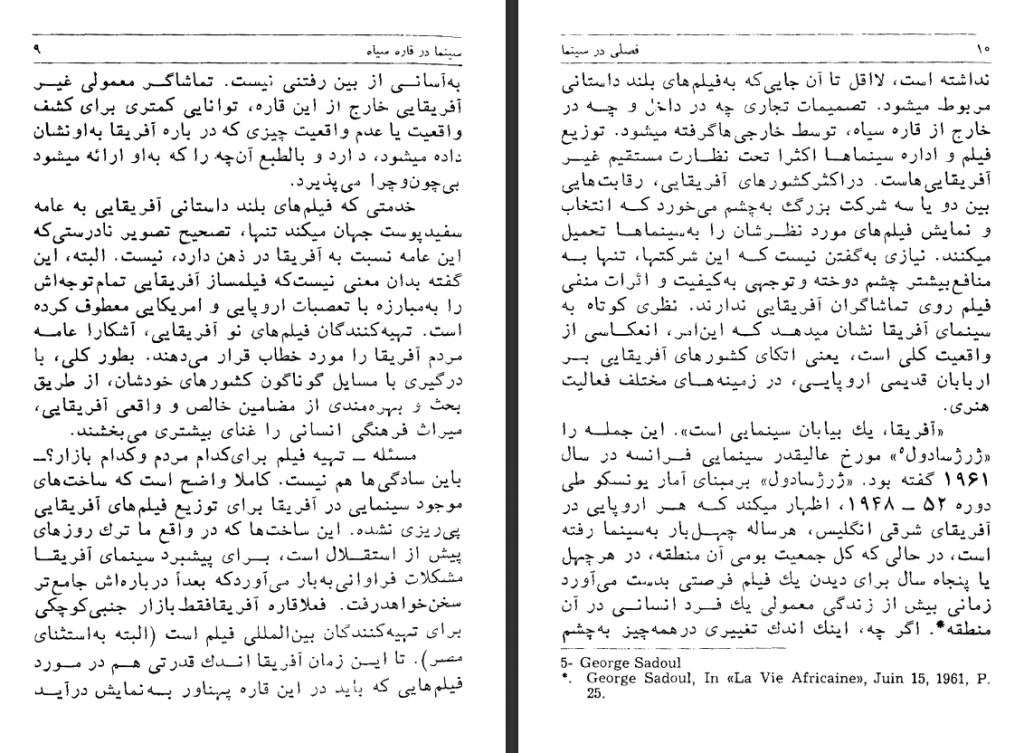 سینما در قاره سیاه ۹
به‌آسانی از بین رفتنی نیست. تماشاگر معمولی غیر
آفریقایی خارج از این قاره، توانایی کمتری برای کشف
واقعیت یا عدم واقعیت چیزی که در باره آفریقا به‌او نشان
داده میشود، دارد و بالطبع آن‌چه را که به‌او ارائه میشود
بی‌چون‌وچرا می‌پذیرد.
خدمتی که فیلم‌های بلند داستانی آفریقایی به عامه
سفیدپوست جهان میکند تنها، تصحیح تصویر نادرستی‌که
این عامه نسبت به آفریقا در ذهن دارد، نیست. البته، این
گفته بدان معنی نیست‌که فیلمساز آفریقایی تمام‌توجه‌اش
را به‌مبارزه با تعصبات اروپایی و امریکایی معطوف کرده
است. تهیه‌کنندگان فیلم‌های نو آفریقایی، آشکارا عامه
مردم آفریقا را مورد خطاب قرار می‌دهند. بطور کلی، با
درگیری با مسایل گوناگون کشورهای خودشان، از طریق
بحث و بهره‌مندی از مضامین خالص و واقعی آفریقایی،
میراث فرهنگی انسانی را غنای بیشتری می‌بخشند.
مسئله ــ تهیه فیلم برای‌کدام مردم وکدام بازار؟ــ
باین سادگی‌ها هم نیست. کاملا واضح است که ساخت‌های
موجود سینمایی در آفریقا برای توزیع فیلم‌های آفریقایی
پی‌ریزی نشده. این ساخت‌ها که در واقع ما ترك روزهای
پیش از استقلال است، برای پیشبرد سینمای آفریقا
مشکلات فراوانی‌به‌بار می‌آوردکه بعداً درباره‌اش جامع‌تر
سخن‌خواهدرفت. فعلاقاره آفریقافقط‌بازار جنبی‌کوچکی
برای تهیه‌کنندگان بین‌المللی فیلم است (البته به‌استثنای
مصر). تا این زمان آفریقا اندك قدرتی هم در مورد
فیلم‌هایی که باید در این قاره پهناور به‌نمایش درآید
۱۰ فصلی در سینما
نداشته است، لااقل تا آن جایی‌که به‌فیلم‌های بلند داستانی
مربوط میشود. تصمیمات تجاری چه در داخل و چه در
خارج از قاره سیاه، توسط خارجی‌هاگرفته میشود. توزیع
فیلم و اداره سینماها اکثرا تحت نظارت مستقیم غیر
آفریقایی‌هاست. دراکثرکشورهای آفریقایی، رقابت‌هایی
بین دو یا سه شرکت بزرگ به‌چشم می‌خورد که انتخاب
و نمایش فیلم‌های مورد نظرشان را به‌سینماها تحمیل
میکنند. نیازی به‌گفتن نیست که این شرکتها، تنها به
منافع‌بیشتر چشم دوخته وتوجهی به‌کیفیت و اثرات منفی
فیلم روی تماشاگران آفریقایی ندارند. نظری کوتاه به
سینمای آفریقا نشان میدهد که این‌امر، انعکاسی از
واقعیت کلی است، یعنی اتکای کشورهای آفریقایی بر
اربابان قدیمی اروپایی، در زمینه‌های مختلف فعالیت
هنری.
«آفریقا، یك بیابان سینمایی است». این جمله را
«ژرژسادول۵» مورخ عالیقدر سینمایی فرانسه در سال
۱۹۶۱ گفته بود. «ژرژسادول» برمبنای آمار یونسکو طی
دوره ۵۲ ــ ۱۹۴۸، اظهار میکند که هر اروپایی در
آفریقای شرقی انگلیس، هرساله چهل‌بار به‌سینما رفته
است، در حالی که کل جمعیت بومی آن منطقه، در هرچهل
یا پنجاه سال برای دیدن یك فیلم فرصتی بدست می‌آورد
زمانی بیش از زندگی معمولی یك فرد انسانی در آن
منطقه*. اگر چه، اینك اندك تغییری درهمه‌چیز به‌چشم
5- George Sadoul
*. George Sadoul, In «La Vie Africaine», Juin 15, 1961, P.
25.